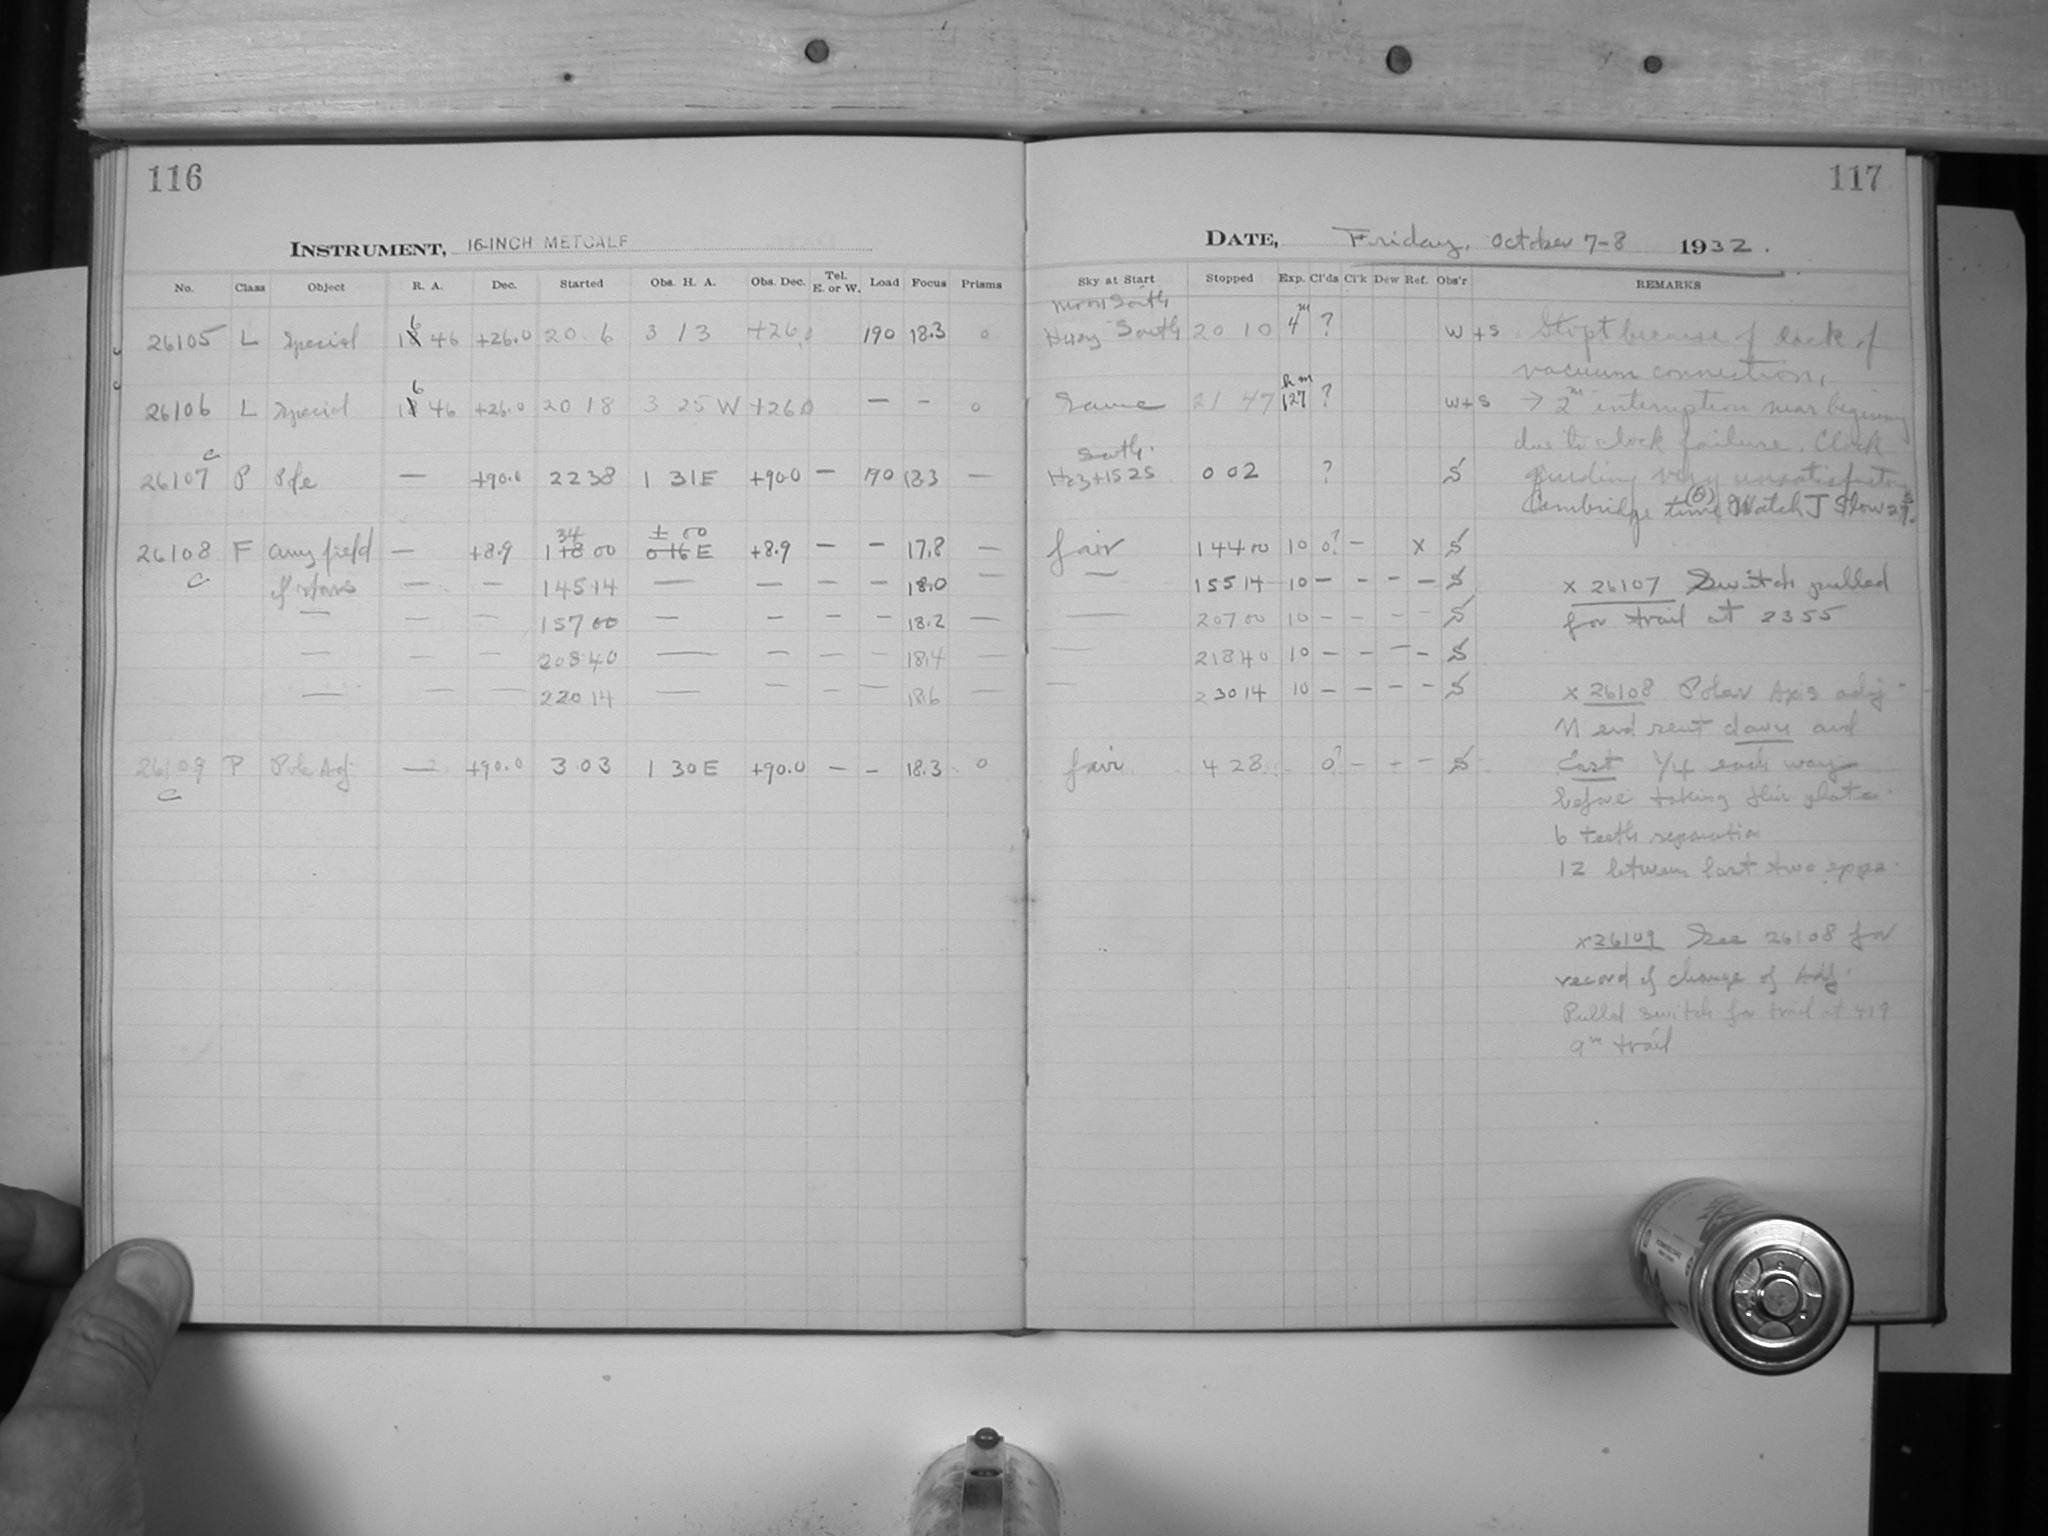 116
117
INSTRUMENT, 16-INCH METCALF
DATE, Friday, October 7-8 1932.
No. Class Object R. A. Dec. Started Obs. H. A. Obs. Dec. Tel. E. or W. Load Focus Prisms
Sky at Start Stopped Exp. Cl'ds Cl'k Dew Ref. Obs'r REMARKS
Moon South
26105 L Special 16 46 +26.0 20 6 3 13 +26.0 190 18.3 0 Hazy South 20 10 4m ? W+S Stopt because of lack of
vacuum connection.
26106 L Special 16 46 +26.0 20 18 3 25 W +26.0 — — 0 Same 21 47 127 ? W+S → 2m interruption near beginning
due to clock failure. Clock
South.
26107 P Pole — +90.0 22 38 1 31 E +90.0 — 190 18.3 — 0 02 ? S guiding very unsatisfactory
c
Cambridge time Watch J Slow 27s.
26108 F any field — +8.9 1 34 00 ± 00 +8.9 — — 17.8 — fair 1 44 00 10 0? — x S
c of stars — — 1 45 14 — — — — 18.0 — — 1 55 14 10 — — — — S
x 26107 Switch pulled
— — — 1 57 00 — — — — 18.2 — — 2 07 00 10 — — — — S
for trail at 23 55
— — — 2 08 40 — — — — 18.4 — — 2 18 40 10 — — — — S
— — — 2 20 14 — — — — 18.6 — — 2 30 14 10 — — — — S
x 26108 Polar Axis adj -
N end sent down and
26109 P Pole Adj — +90.0 3 03 1 30 E +90.0 — — 18.3 0 fair 4 28 0? — — — S
East 1/4 each way
c
before taking this plate.
6 teeth separation
12 between last two exps.
x 26109 See 26108 for
record of change of Adj.
Pulled switch for trail at 4 19
9m trail